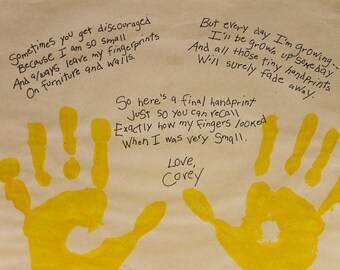 Sometimes you get discouraged
Because I am so small
And always leave my fingerprints
On furniture and walls.
But every day I'm growing--
I'll be grown up someday
And all those tiny handprints
Will surely fade away.
So here's a final handprint
Just so you can recall
Exactly how my fingers looked
When I was very small.
Love,
Corey